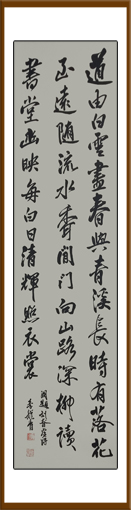 道由白雲盡春與青溪長時有落花
至遠隨流水香閒門向山路深柳讀
書堂幽映每白日清輝照衣裳
闕題劉眘虛詩